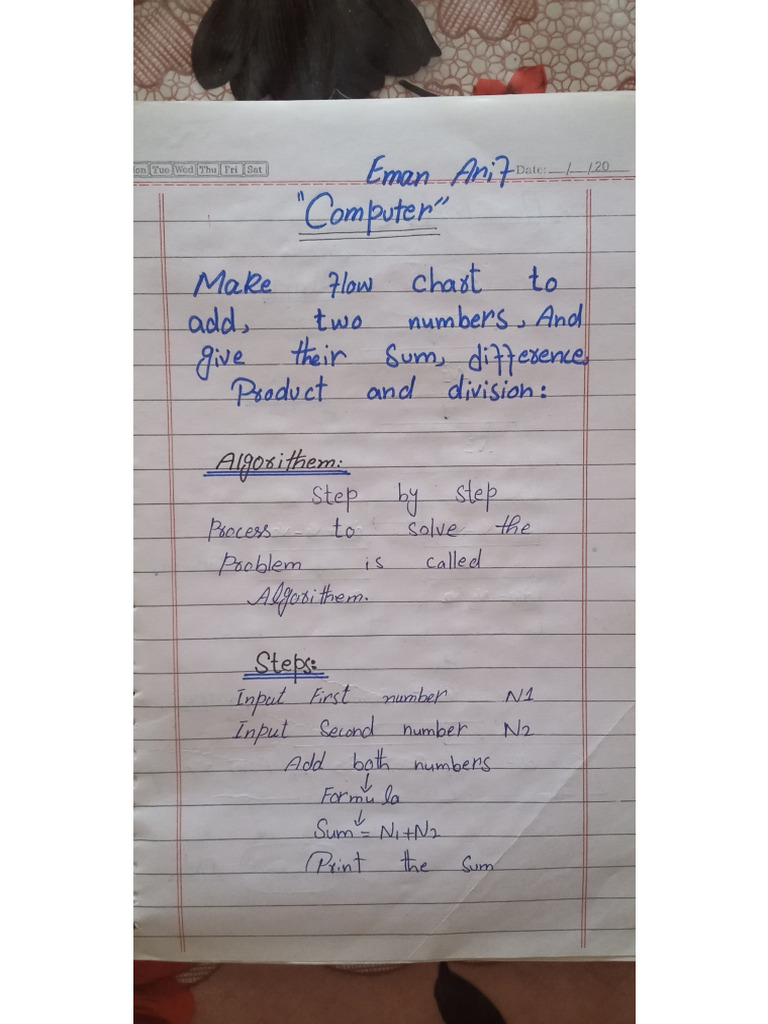 on Tue Wed Thu Fri Sat
Eman Anif Date: __/__/20
"Computer"
Make flow chart to
add, two numbers, And
give their Sum, difference,
Product and division:
Algorithem:
Step by step
Process to solve the
Problem is called
Algorithem.
Steps:
Input First number N1
Input Second number N2
Add both numbers
↓
Formula
↓
Sum = N1+N2
Print the Sum